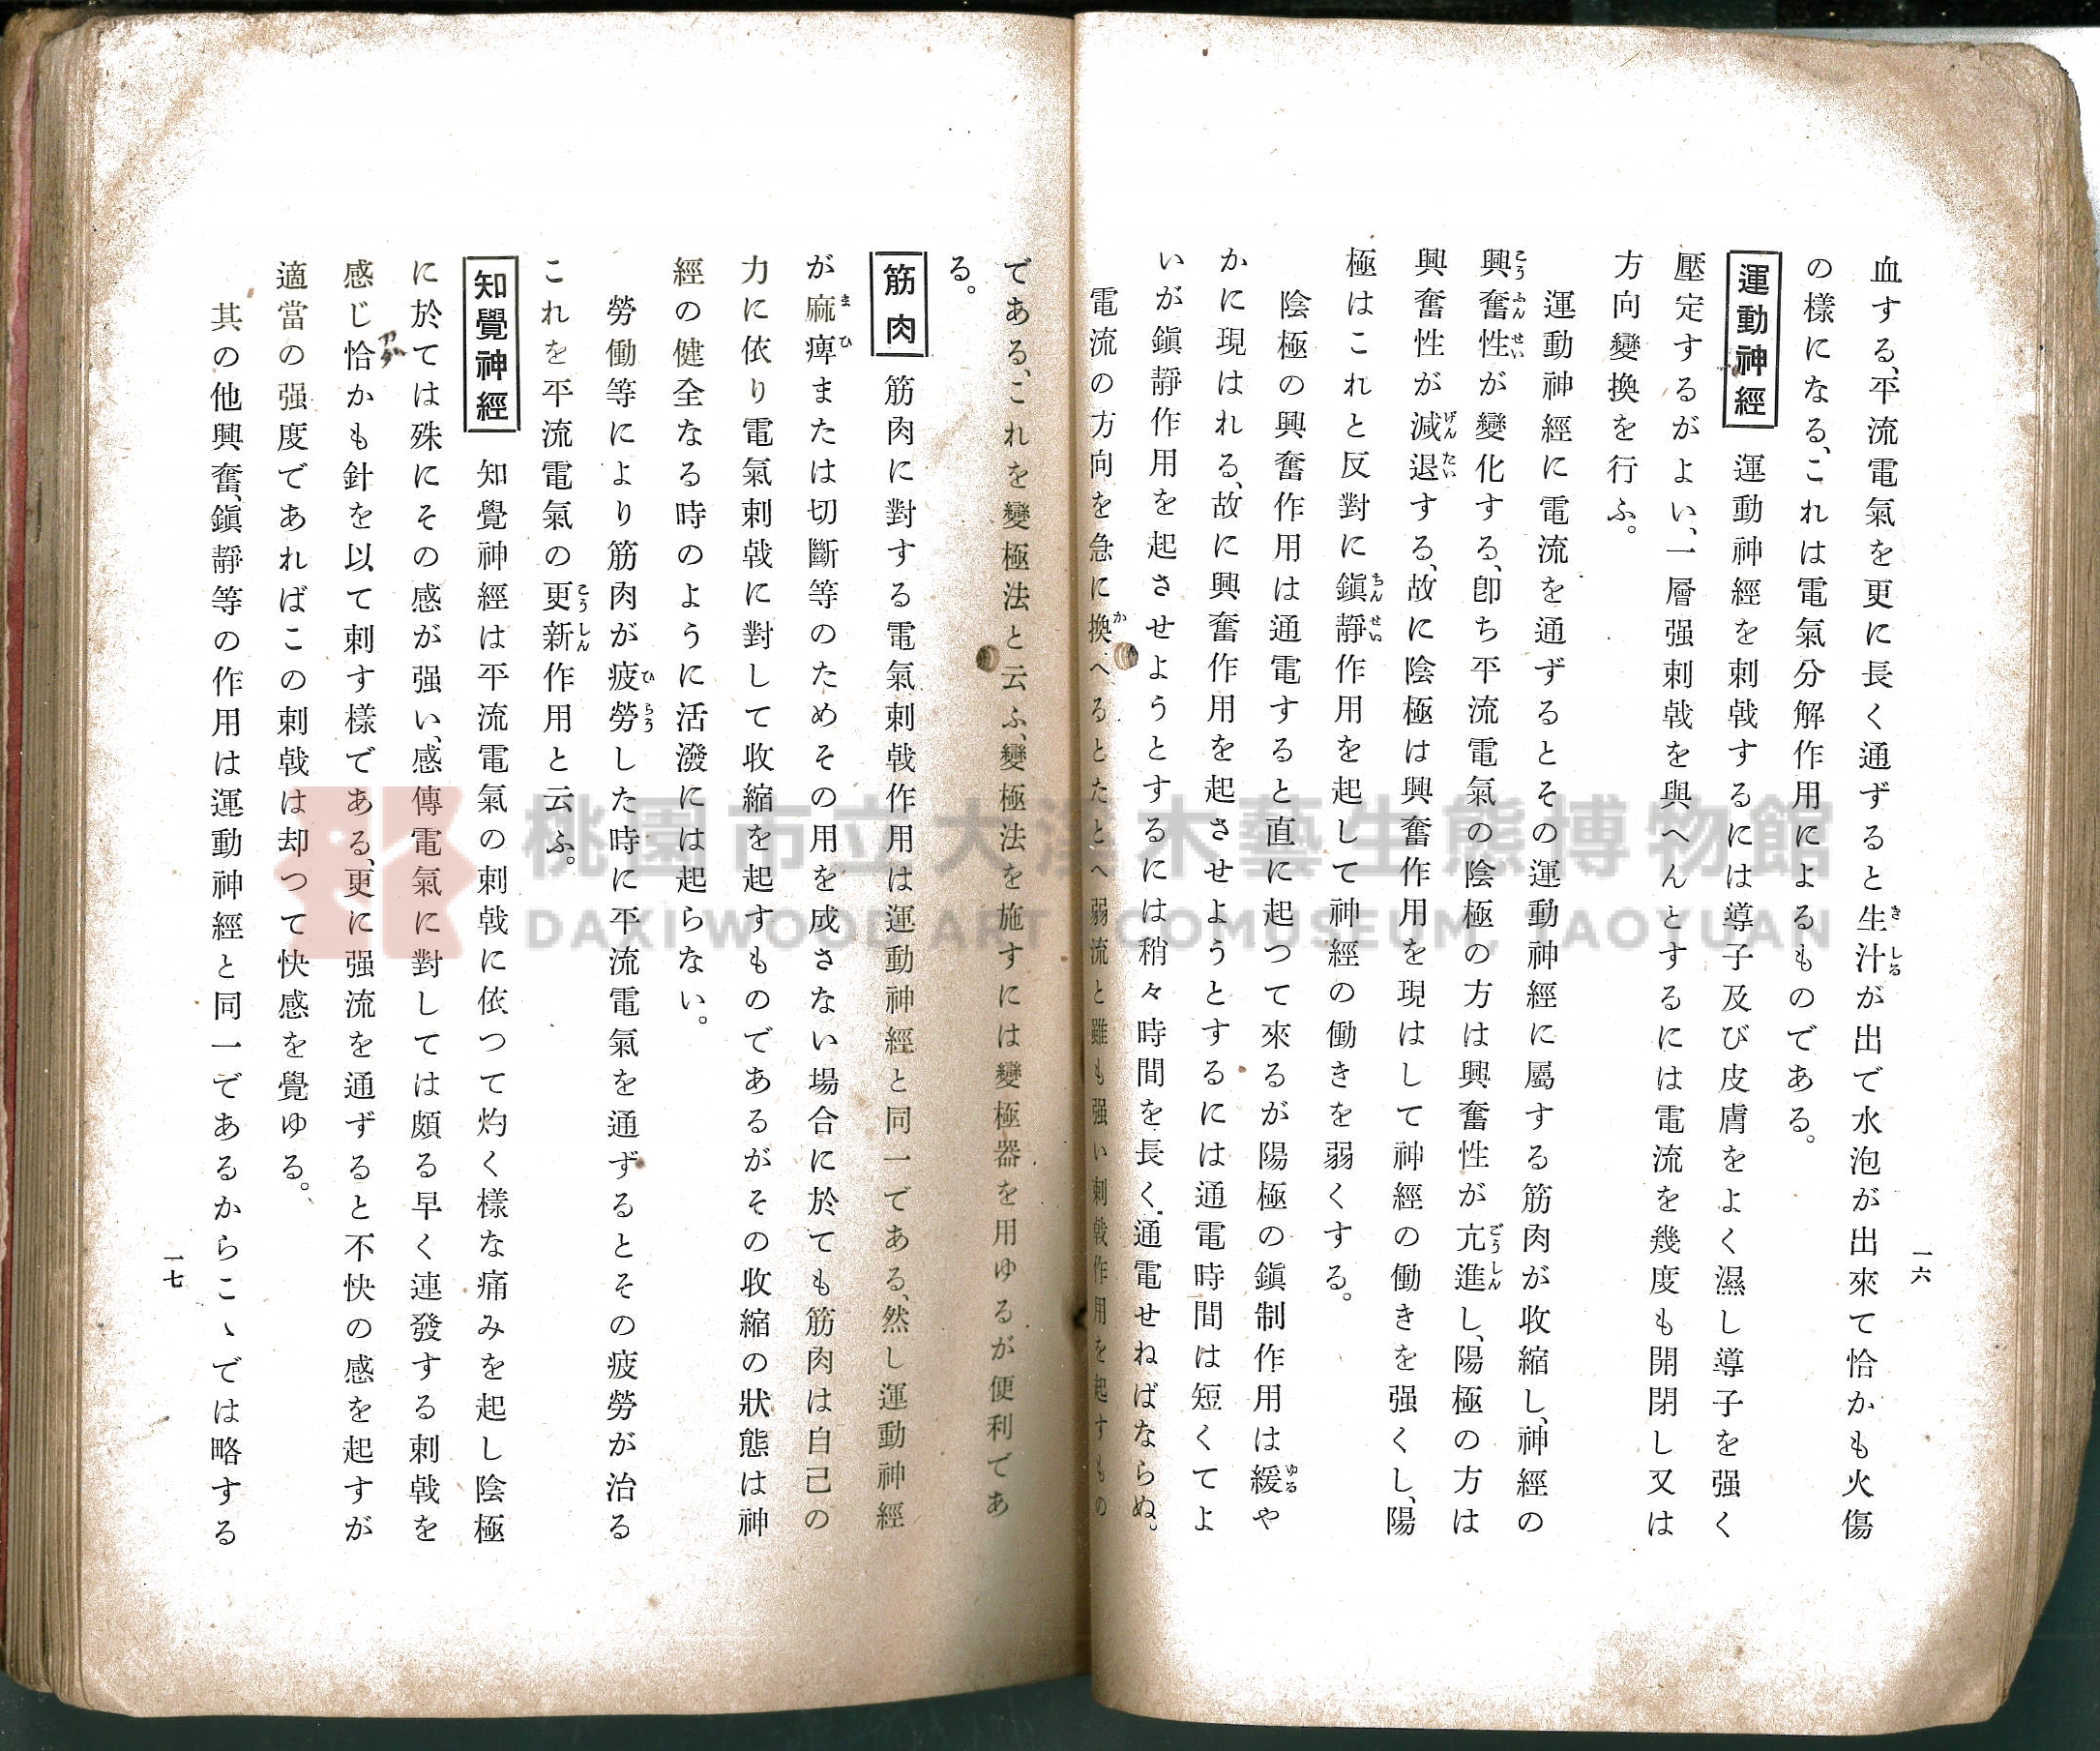 一六
血する、平流電氣を更に長く通ずると生汁が出で水泡が出來て恰かも火傷
の樣になる、これは電氣分解作用によるものである。
運動神經 運動神經を刺戟するには導子及び皮膚をよく濕し導子を强く
壓定するがよい、一層强刺戟を與へんとするには電流を幾度も開閉し又は
方向變換を行ふ。
運動神經に電流を通ずるとその運動神經に屬する筋肉が收縮し、神經の
興奮性が變化する、卽ち平流電氣の陰極の方は興奮性が亢進し、陽極の方は
興奮性が減退する、故に陰極は興奮作用を現はして神經の働きを强くし、陽
極はこれと反對に鎭靜作用を起して神經の働きを弱くする。
陰極の興奮作用は通電すると直に起つて來るが陽極の鎭制作用は緩や
かに現はれる、故に興奮作用を起させようとするには通電時間は短くてよ
いが鎭靜作用を起させようとするには稍々時間を長く通電せねばならぬ。
電流の方向を急に換へるとたとへ弱流と雖も强い刺戟作用を起すもの
である、これを變極法と云ふ、變極法を施すには變極器を用ゆるが便利であ
る。
筋肉 筋肉に對する電氣刺戟作用は運動神經と同一である、然し運動神經
が麻痺または切斷等のためその用を成さない場合に於ても筋肉は自己の
力に依り電氣刺戟に對して收縮を起すものであるがその收縮の狀態は神
經の健全なる時のように活潑には起らない。
勞働等により筋肉が疲勞した時に平流電氣を通ずるとその疲勞が治る
これを平流電氣の更新作用と云ふ。
知覺神經 知覺神經は平流電氣の刺戟に依つて灼く樣な痛みを起し陰極
に於ては殊にその感が强い、感傳電氣に對しては頗る早く連發する刺戟を
感じ恰かも針を以て刺す樣である、更に强流を通ずると不快の感を起すが
適當の强度であればこの刺戟は却つて快感を覺ゆる。
其の他興奮、鎭靜等の作用は運動神經と同一であるからこゝでは略する
一七
桃園市立大溪木藝生態博物館
DAXI WOOD ART ECOMUSEUM, TAOYUAN